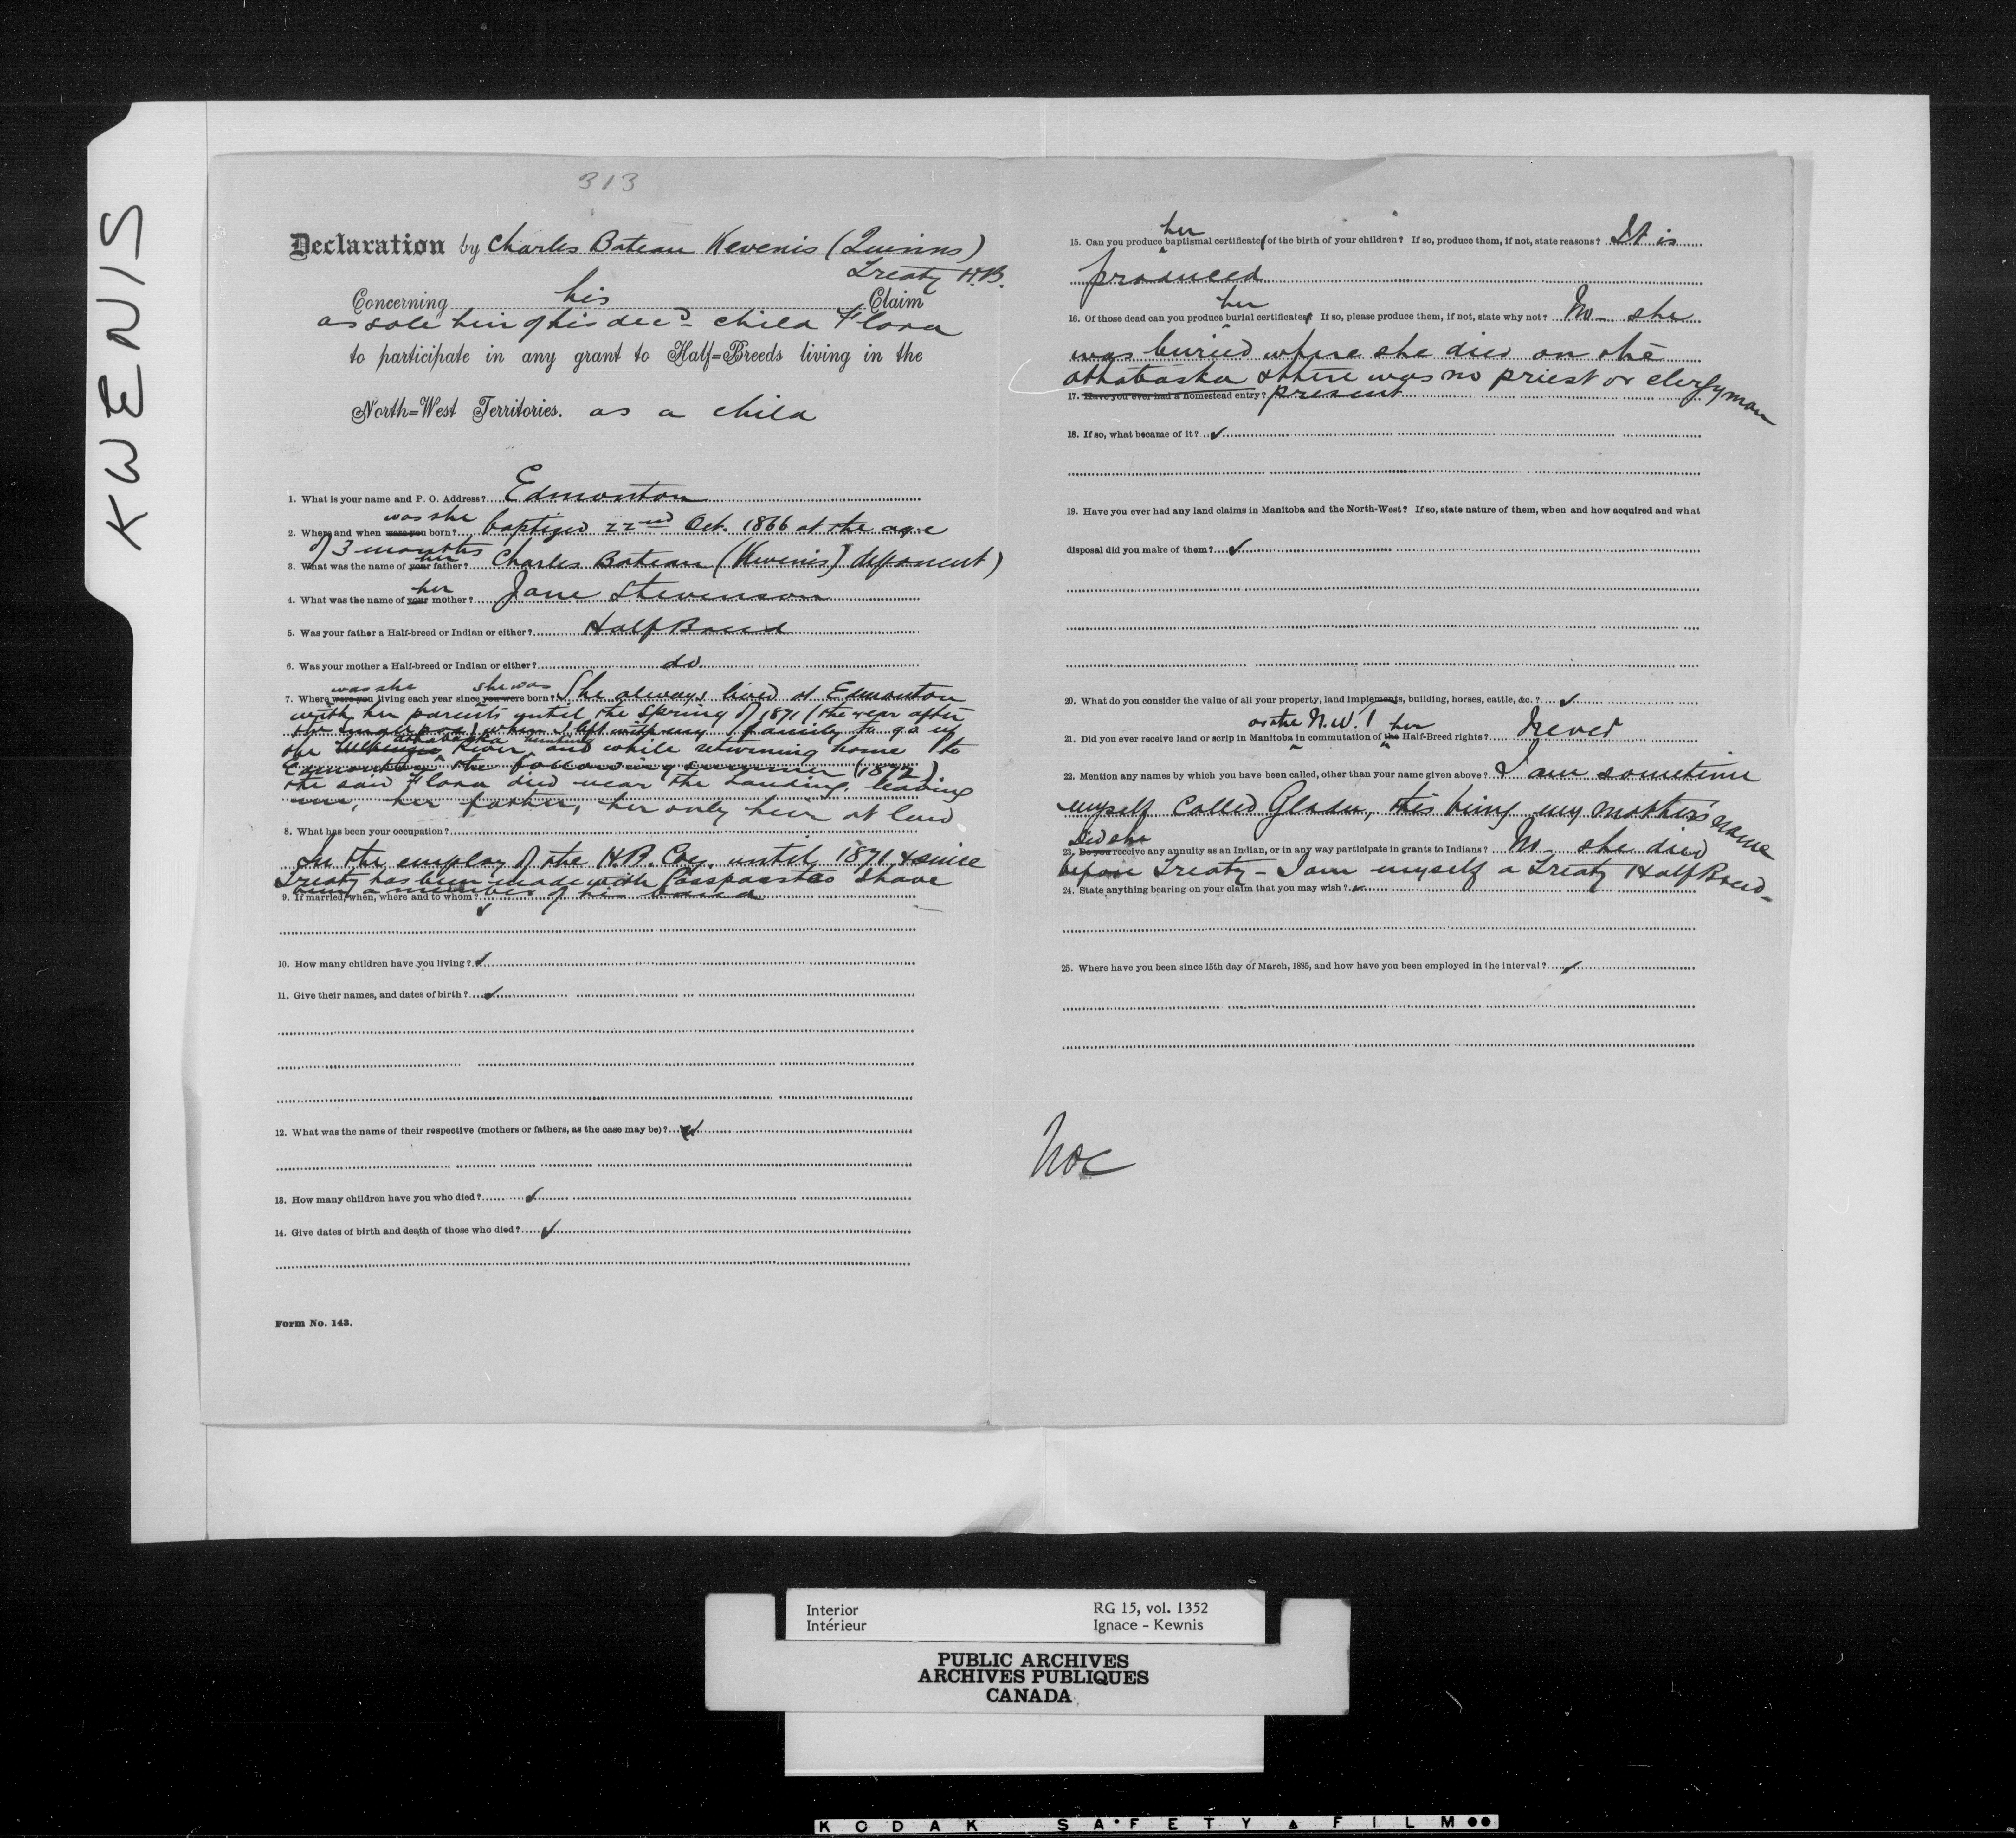 KWENIS
313
Declaration by Charles Bateau Kevenis (Quinns)
Treaty H.B.
Concerning his Claim
as sole heir of his decd child Flora
to participate in any grant to Half=Breeds living in the
North=West Territories. as a child
1. What is your name and P. O. Address? Edmonton
was she
2. Where and when were you born? baptized 22nd Oct. 1866 at the age
of 3 months
her
3. What was the name of your father? Charles Bateau (Kwenis) deponent)
her
4. What was the name of your mother? Jane Stevenson
5. Was your father a Half-breed or Indian or either? Half Breed
6. Was your mother a Half-breed or Indian or either? do.
was she she was
7. Where were you living each year since you were born? She always lived at Edmonton
with her parents until the Spring of 1871 (the year after
the small pox) when I left with my family to go up
Athabaska hunting
the River and while returning home to
Edmonton the following summer (1872).
the said Flora died near the Landing, leaving
me, her father, her only heir at law
8. What has been your occupation?
In the employ of the H.B. Coy until 1871 & since
Treaty has been made with Passpasstas I have
been a member of his band
9. If married, when, where and to whom? ✓
10. How many children have you living? ✓
11. Give their names, and dates of birth? ✓
12. What was the name of their respective (mothers or fathers, as the case may be)? ✓
13. How many children have you who died? ✓
14. Give dates of birth and death of those who died? ✓
Form No. 143.
her
15. Can you produce baptismal certificate of the birth of your children? If so, produce them, if not, state reasons? It is
produced
her
16. Of those dead can you produce burial certificates? If so, please produce them, if not, state why not? No – she
was buried where she died on the
Athabaska & there was no priest or clergyman
17. Have you ever had a homestead entry? present
18. If so, what became of it? ✓
19. Have you ever had any land claims in Manitoba and the North-West? If so, state nature of them, when and how acquired and what
disposal did you make of them? ✓
20. What do you consider the value of all your property, land implements, building, horses, cattle, &c.? ✓
or the N.W.T her
21. Did you ever receive land or scrip in Manitoba in commutation of the Half-Breed rights? Never
22. Mention any names by which you have been called, other than your name given above? I am sometime
myself called Gladu, this being my mother's name
Did she
23. Do you receive any annuity as an Indian, or in any way participate in grants to Indians? No – she died
before Treaty – I am myself a Treaty Half Breed –
24. State anything bearing on your claim that you may wish? ✓
25. Where have you been since 15th day of March, 1885, and how have you been employed in the interval? ✓
Interior
Intérieur
RG 15, vol. 1352
Ignace – Kewnis
PUBLIC ARCHIVES
ARCHIVES PUBLIQUES
CANADA
KODAK SAFETY FILM